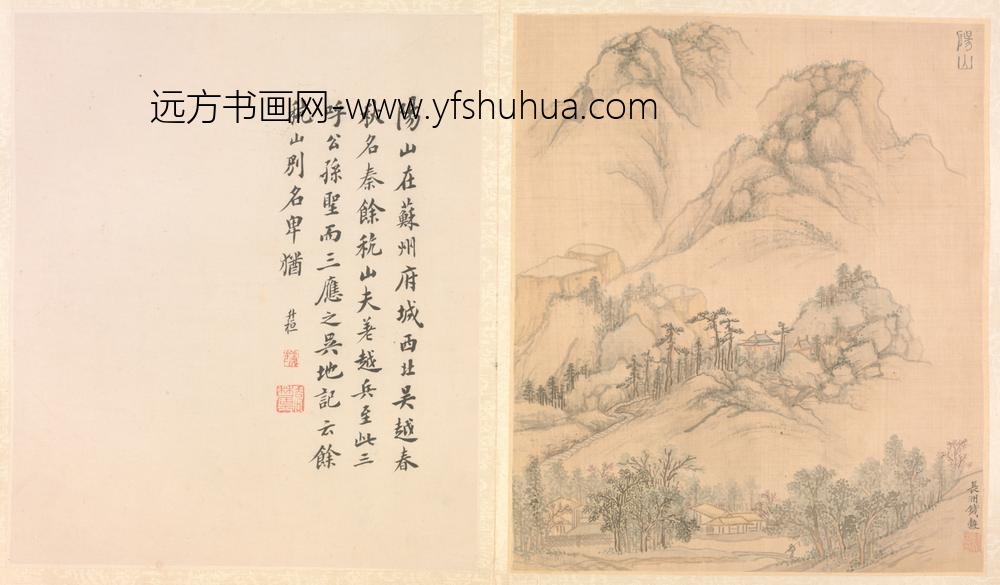 陽山在蘇州府城西北吳越春
秋名秦餘杭山夫差越兵至此三
呼公孫聖而三應之吳地記云餘
杭山別名卑猶
升桓
远方书画网-www.yfshuhua.com
陽山
長洲錢